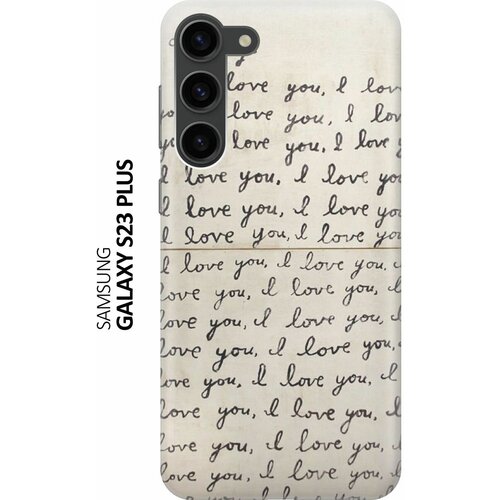 SAMSUNG
GALAXY S23 PLUS
love you, I lov
love you, I lov
love you, I love y
I love you, I love you
I love you, I love you
I love you, I love you
I love you, I love you,
love you, I love you,
love you, I love you,
love you, I love you,
love you, I love you, I
love you, I love you, I
love you, I love you, I
love you, I love you, I